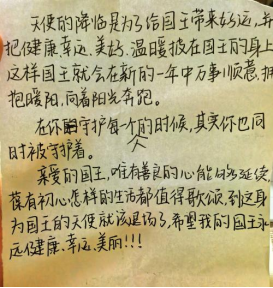 天使的降临是为了给国王带来好运,并
把健康、幸运、美好、温暖披在国王的身上
这样国王就会在新的一年中万事顺意,拥
抱暖阳,向着阳光奔跑。
在你守护每个人的时候,其实你也同
时被守护着。
亲爱的国王,唯有善良的心能够延续,
葆有初心怎样的生活都值得歌颂,到这身
为国王的天使就该退场了,希望我的国王永
远健康、幸运、美丽!!!